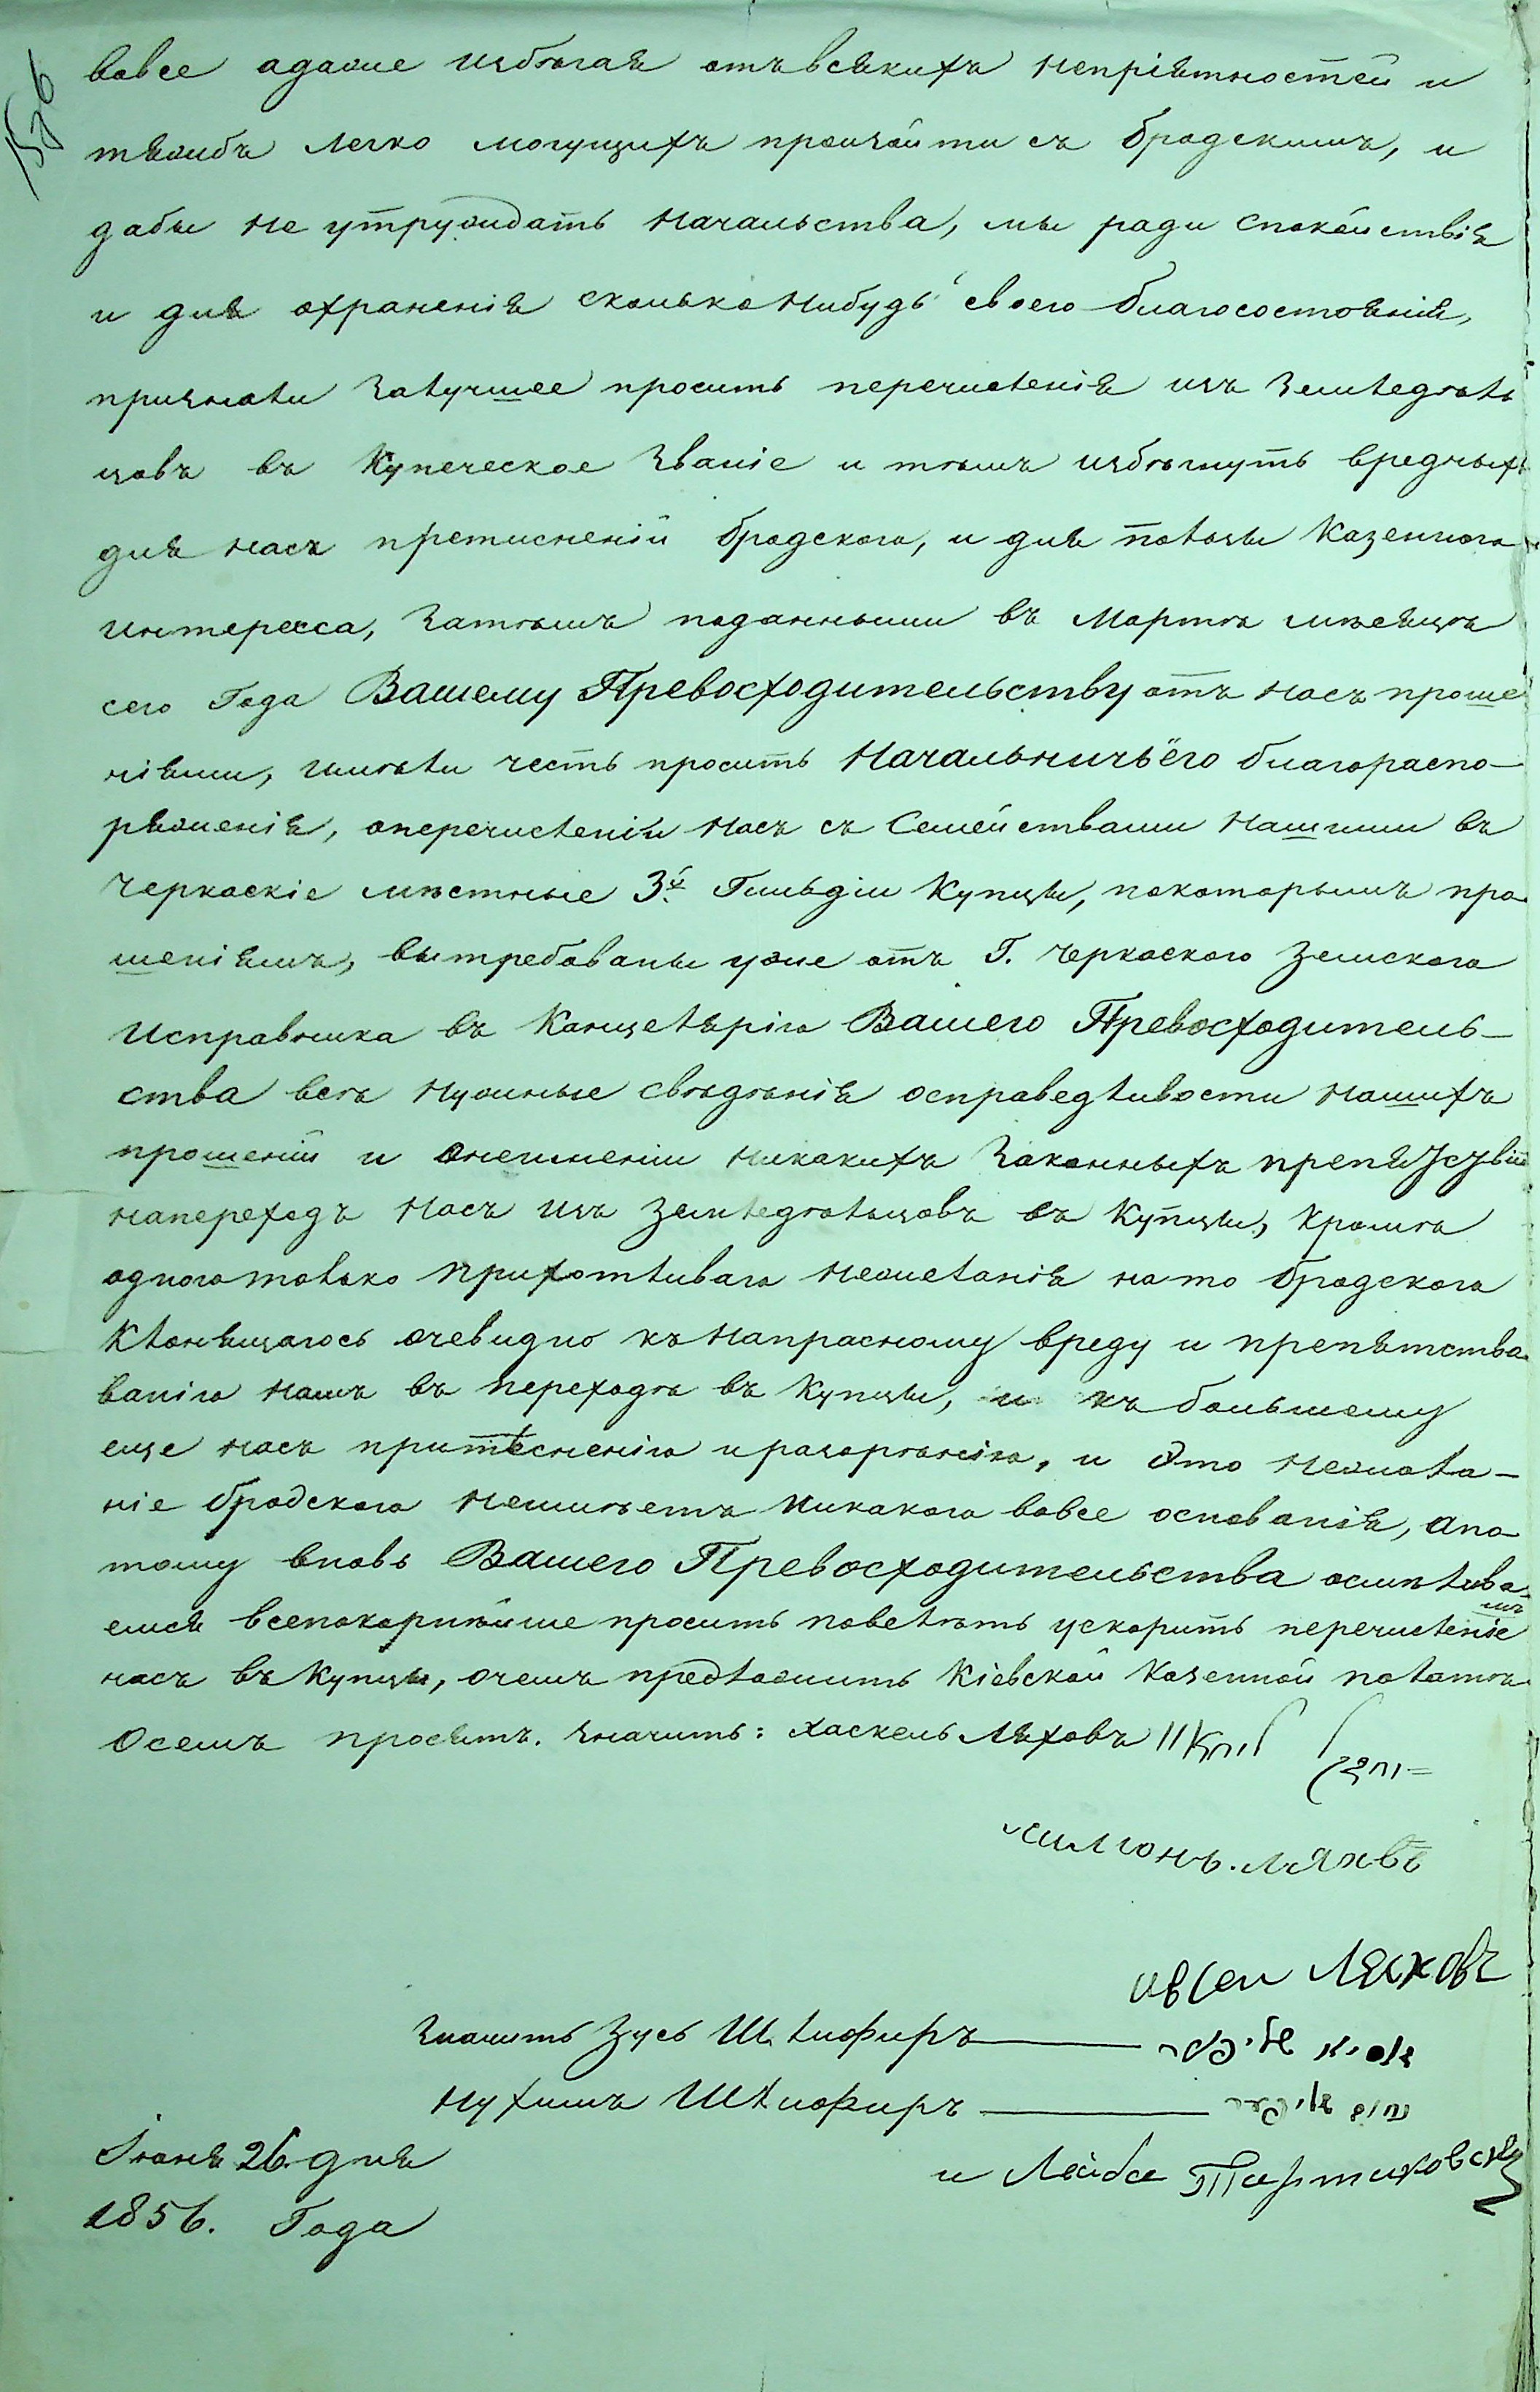 вовсе адаже избѣгая отъ всякихъ непріятностей и
тяжбъ легко могущихъ произойти съ Бродскимъ, и
дабы не утруждать Начальства, мы ради спокойствія
и для охраненія сколько нибудь своего благосостоянія,
признали залучшее просить перечисленія изъ земледѣль
цовъ въ Купеческое Званіе и тѣмъ избѣгнуть вредныхъ
для насъ претисненій Бродского, и для пользы Казенного
интересса, затѣмъ поданными въ Мартѣ мѣсяцѣ
сего Года Вашему Превосходительству отъ насъ проше
ніями, имѣли честь просить Начальничьёго благораспо-
ряженія, оперечисленіи насъ съ Семействами нашими въ
Черкаскіе мѣстные 3й Гильдіи Купцы, покоторымъ про
шеніямъ, вытребованы уже отъ Г. Черкаского Земского
Исправника въ Канцелярію Вашего Превосходитель-
ства всѣ нужные свѣдѣнія осправедливости нашихъ
прошеній и онеимении никакихъ законныхъ
напереходъ насъ изъ земледѣльцовъ въ Купцы, кромѣ
одного только прихотливаго нежеланія на то Бродского
клонящагось очевидно къ напрасному вреду и препятство
ванію намъ въ переходѣ въ Купцы, и къ большему
еще насъ притѣсненію иразорѣнію, и это нежела-
ніе Бродского неимѣетъ никакого вовсе основанія, апо
тому вновь Вашего Превосходительства осмѣлива
емся всепокорнѣйше просить повелѣть ускорить перечисленіе
насъ въ Купцы, очемъ предложить Кіевской Казенной Полатѣ
Осемъ просятъ. Значитъ: Хаскель Ляховъ
Симонъ. Ляховъ
Ивсей Ляховъ
Значитъ Зусь Шклюфиръ
Нухимъ Шклюфиръ
и Лейба
Іюня 26. дня
1856. Года